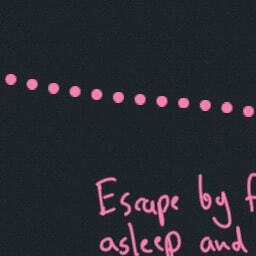 Escape by f
asleep and